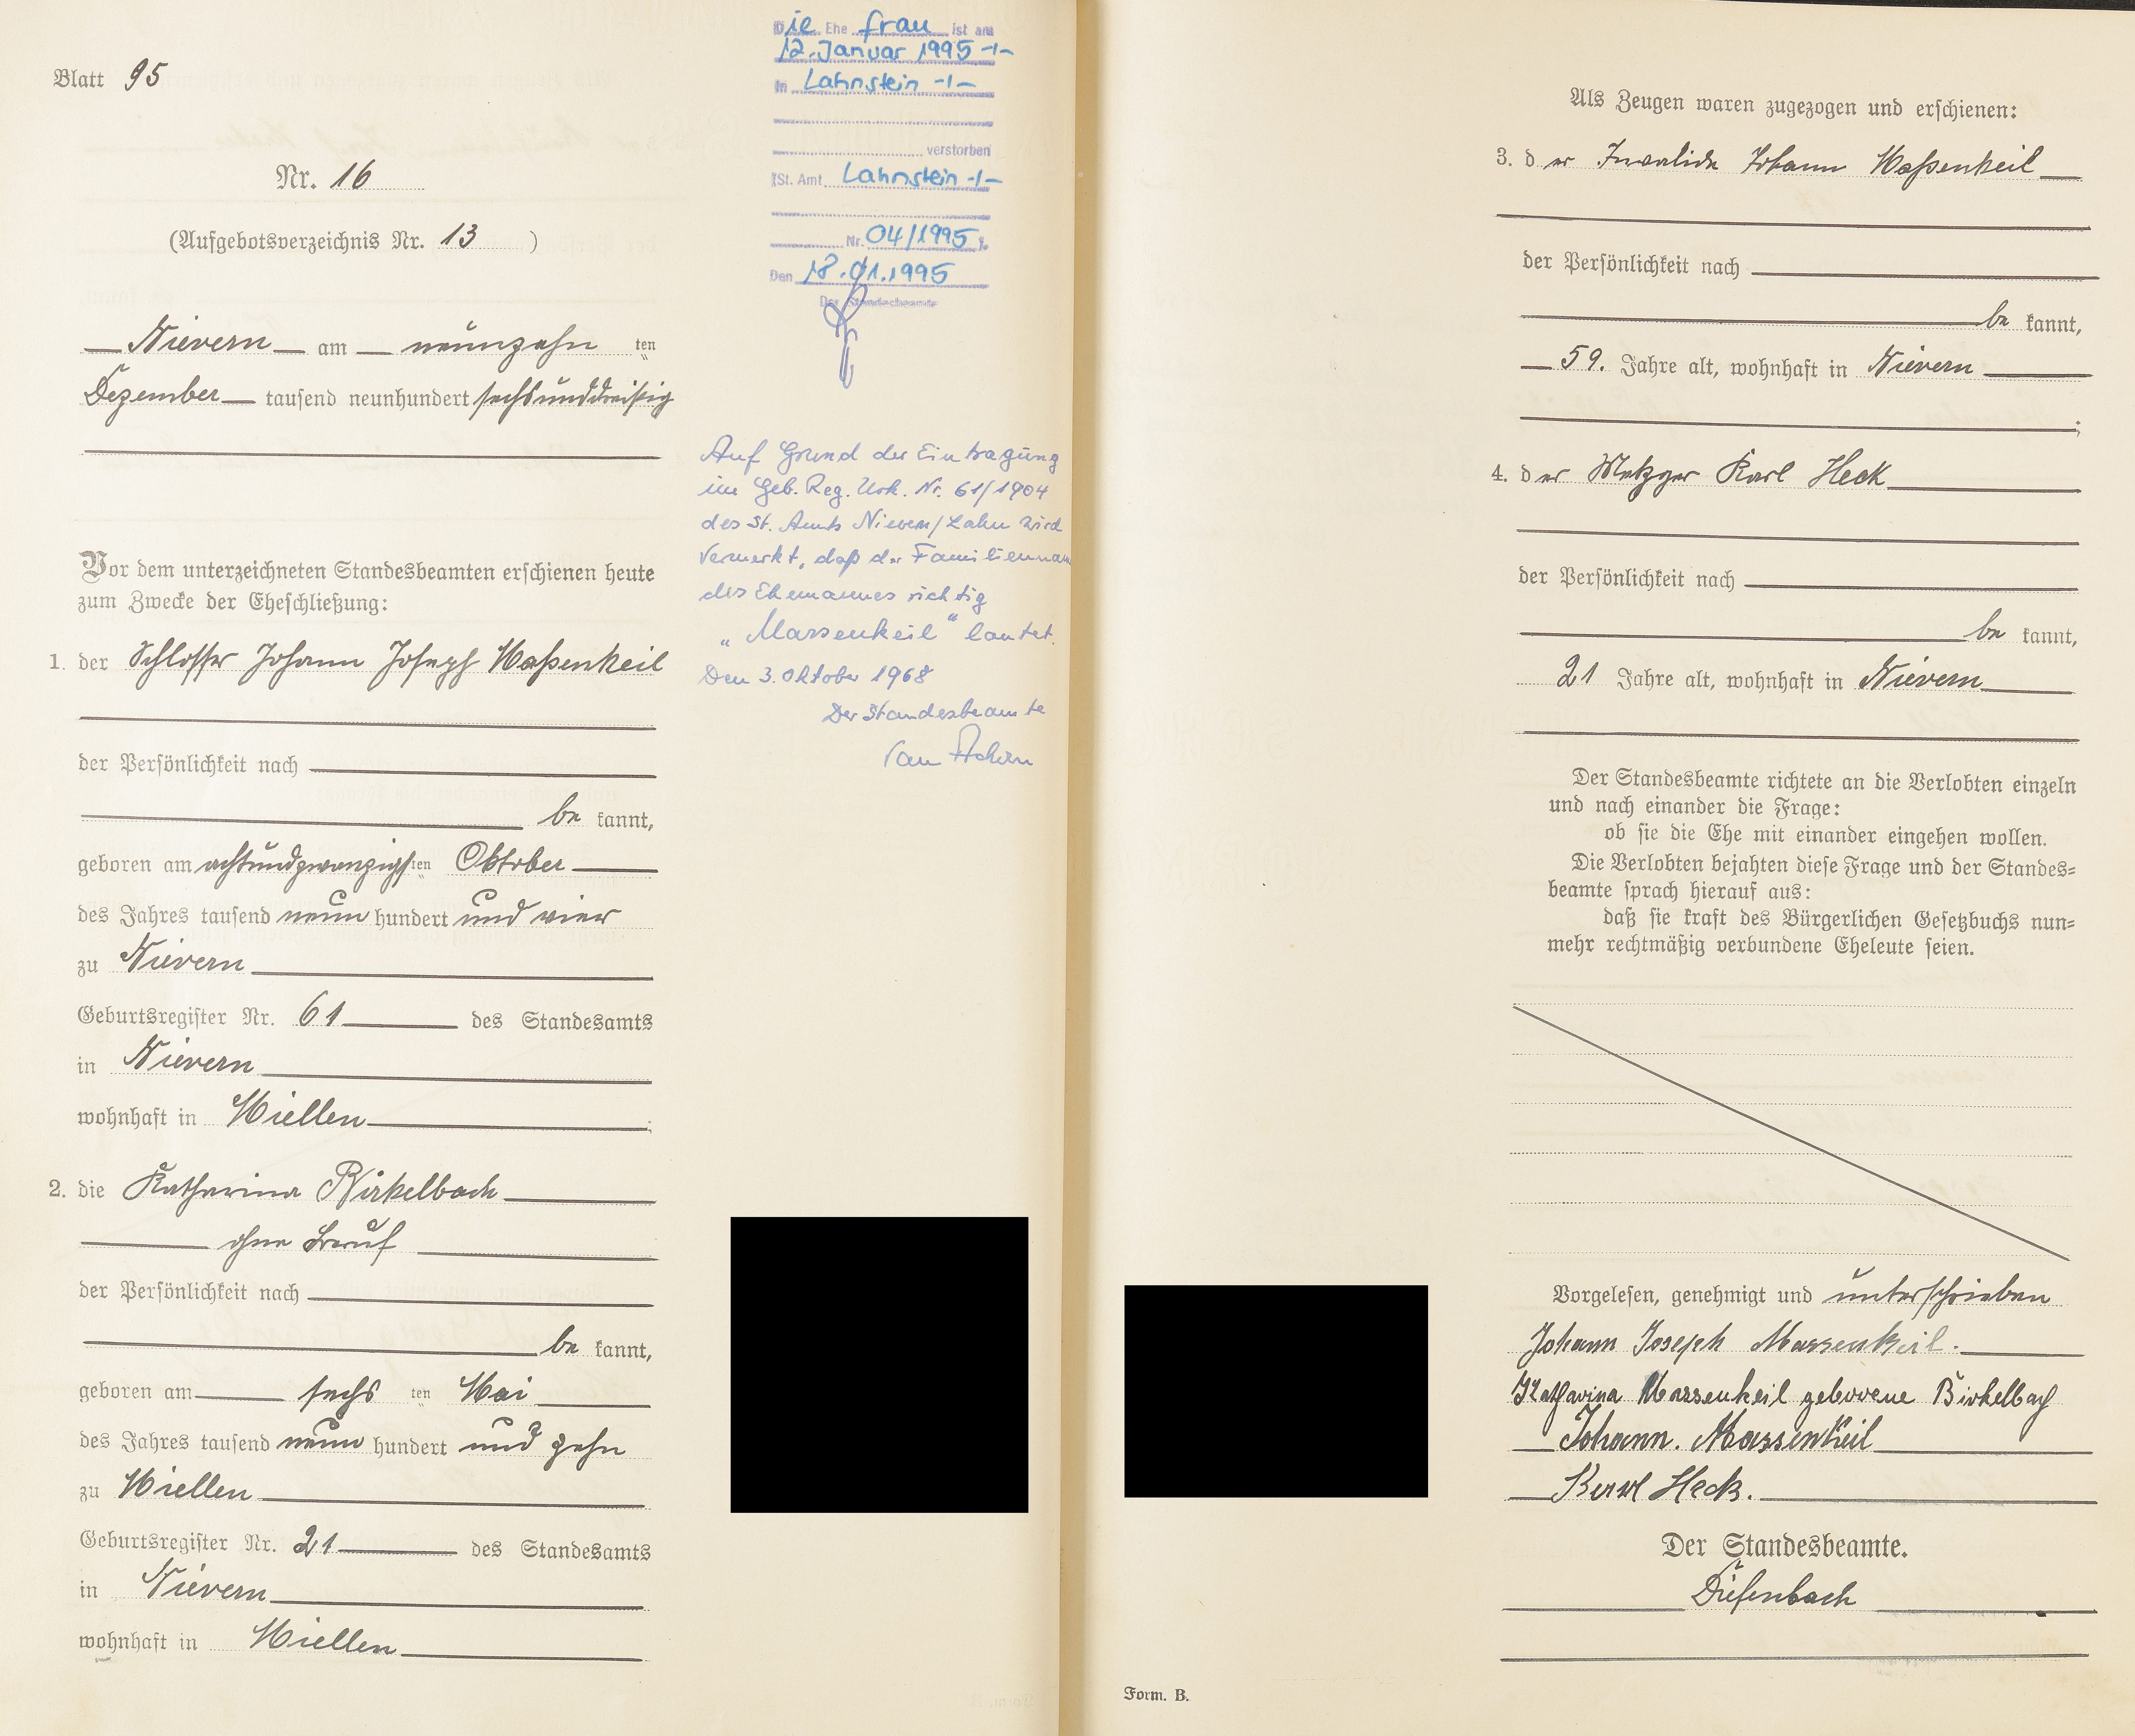 Blatt 95
Nr. 16
(Aufgebotsverzeichnis Nr. 13 )
Nievern am neunzehn ten
Dezember tausend neunhundert sechsunddreißig
Vor dem unterzeichneten Standesbeamten erschienen heute
zum Zwecke der Eheschließung:
1. der Schlosser Johann Joseph Maßenkeil
der Persönlichkeit nach
be kannt,
geboren am achtundzwanzigsten Oktober
des Jahres tausend neun hundert und vier
zu Nievern
Geburtsregister Nr. 61 des Standesamts
in Nievern
wohnhaft in Miellen ;
2. die Katharina Birkelbach
ohne Beruf
der Persönlichkeit nach
be kannt,
geboren am sechs ten Mai
des Jahres tausend neun hundert und zehn
zu Miellen
Geburtsregister Nr. 21 des Standesamts
in Nievern
wohnhaft in Miellen
Die Ehe frau ist am
12. Januar 1995 -/-
in Lahnstein -/-
verstorben
(St. Amt Lahnstein -/-
Nr. 04/1995 ).
Den 18.01.1995
Der Standesbeamte
Auf Grund der Eintragung
im Geb. Reg. Urk. Nr. 61/1904
des St. Amts Nievern/Lahn wird
vermerkt, daß der Familienname
des Ehemannes richtig
„Massenkeil“ lautet.
Den 3. Oktober 1968
Der Standesbeamte
Als Zeugen waren zugezogen und erschienen:
3. der Invalide Johann Maßenkeil
der Persönlichkeit nach
be kannt,
59. Jahre alt, wohnhaft in Nievern
;
4. der Metzger Karl Heck
der Persönlichkeit nach
be kannt,
21 Jahre alt, wohnhaft in Nievern
Der Standesbeamte richtete an die Verlobten einzeln
und nach einander die Frage:
ob sie die Ehe mit einander eingehen wollen.
Die Verlobten bejahten diese Frage und der Standes=
beamte sprach hierauf aus:
daß sie kraft des Bürgerlichen Gesetzbuchs nun=
mehr rechtmäßig verbundene Eheleute seien.
Vorgelesen, genehmigt und unterschrieben
Johann Joseph Massenkeil.
Katharina Massenkeil geborene Birkelbach
Johann. Massenkeil
Karl Heck.
Der Standesbeamte.
Diefenbach
Form. B.